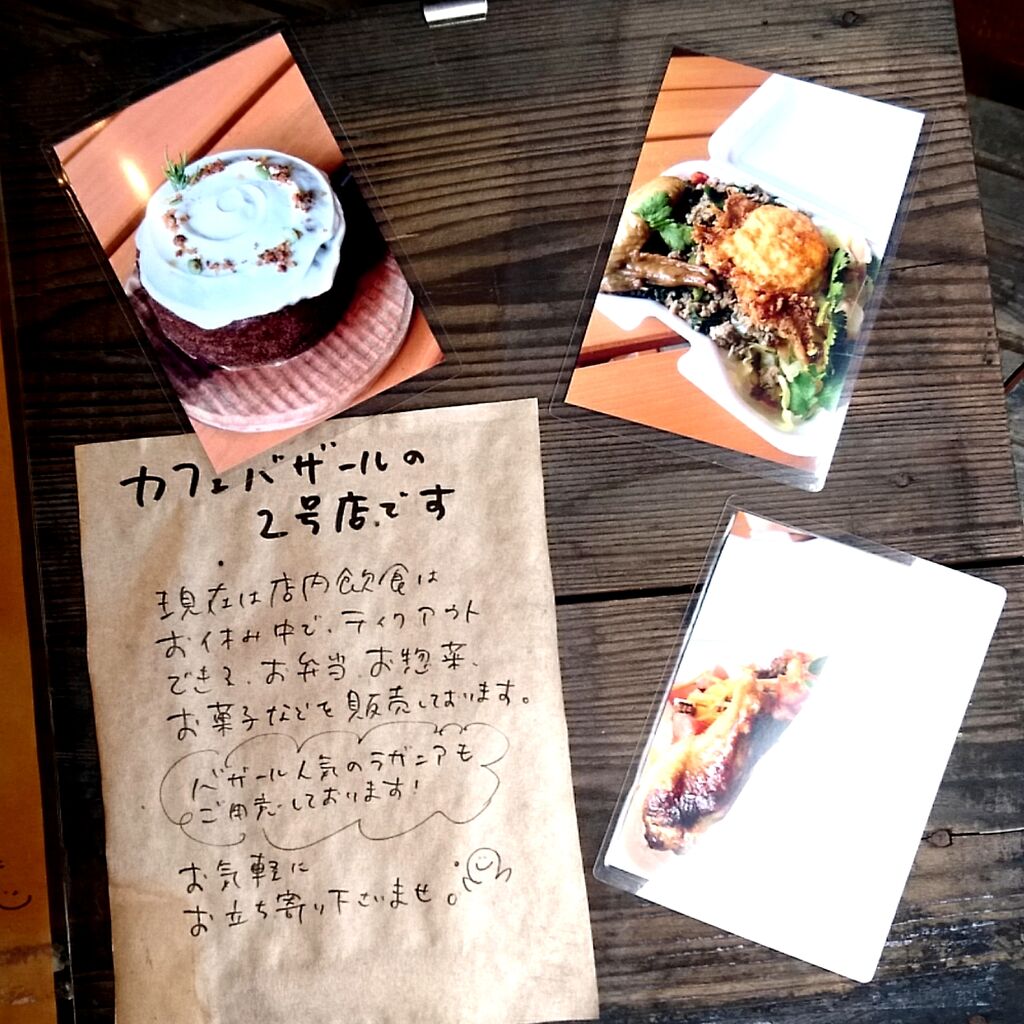 カフェバザールの
2号店です
現在は店内飲食は
お休み中で、テイクアウト
できる、お弁当、お惣菜、
お菓子などを販売しております。
バザール人気のラザニアも
ご用意しております!
お気軽に
お立ち寄り下さいませ。